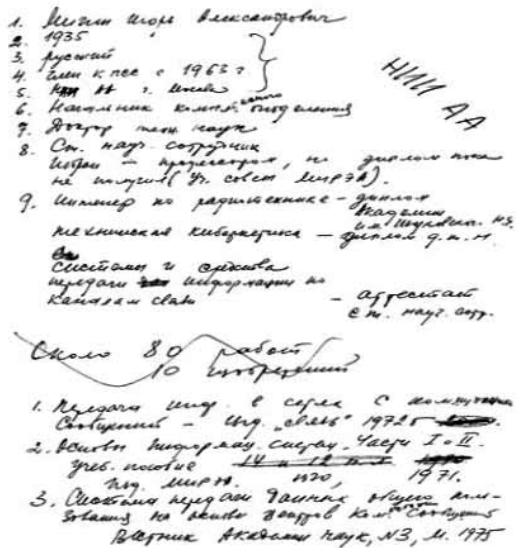 1. Мизин Игорь Александрович
2. 1935
3. русский
4. член КПСС с 1963 г
5. НИИ АА г. Москва
6. Начальник комплексного отделения
НИИ АА
7. Доктор техн. наук
8. Ст. науч. сотрудник
Избран – профессором, но диплом пока
не получил (Уч. совет МИРЭА).
9. Инженер по радиотехнике – диплом
Академии
им. Жуковского Н.Е.
техническая кибернетика – диплом д.т.н.
системы и средства
передачи информации по
каналам связи – аттестат
ст. науч. сотр.
Около 80 работ
10 изобретений
1. Передача инф. в сетях с коммутацией
сообщений – Изд. „Связь" 1972 г
2. Основы информац. систем. Части I и II.
учеб. пособие 14 и 12 п.л
изд. МИРЭА. 1971.
3. Система передачи данных общего поль-
зования на основе центров ком. сообщений
Вестник Академии наук, N3, М. 1975